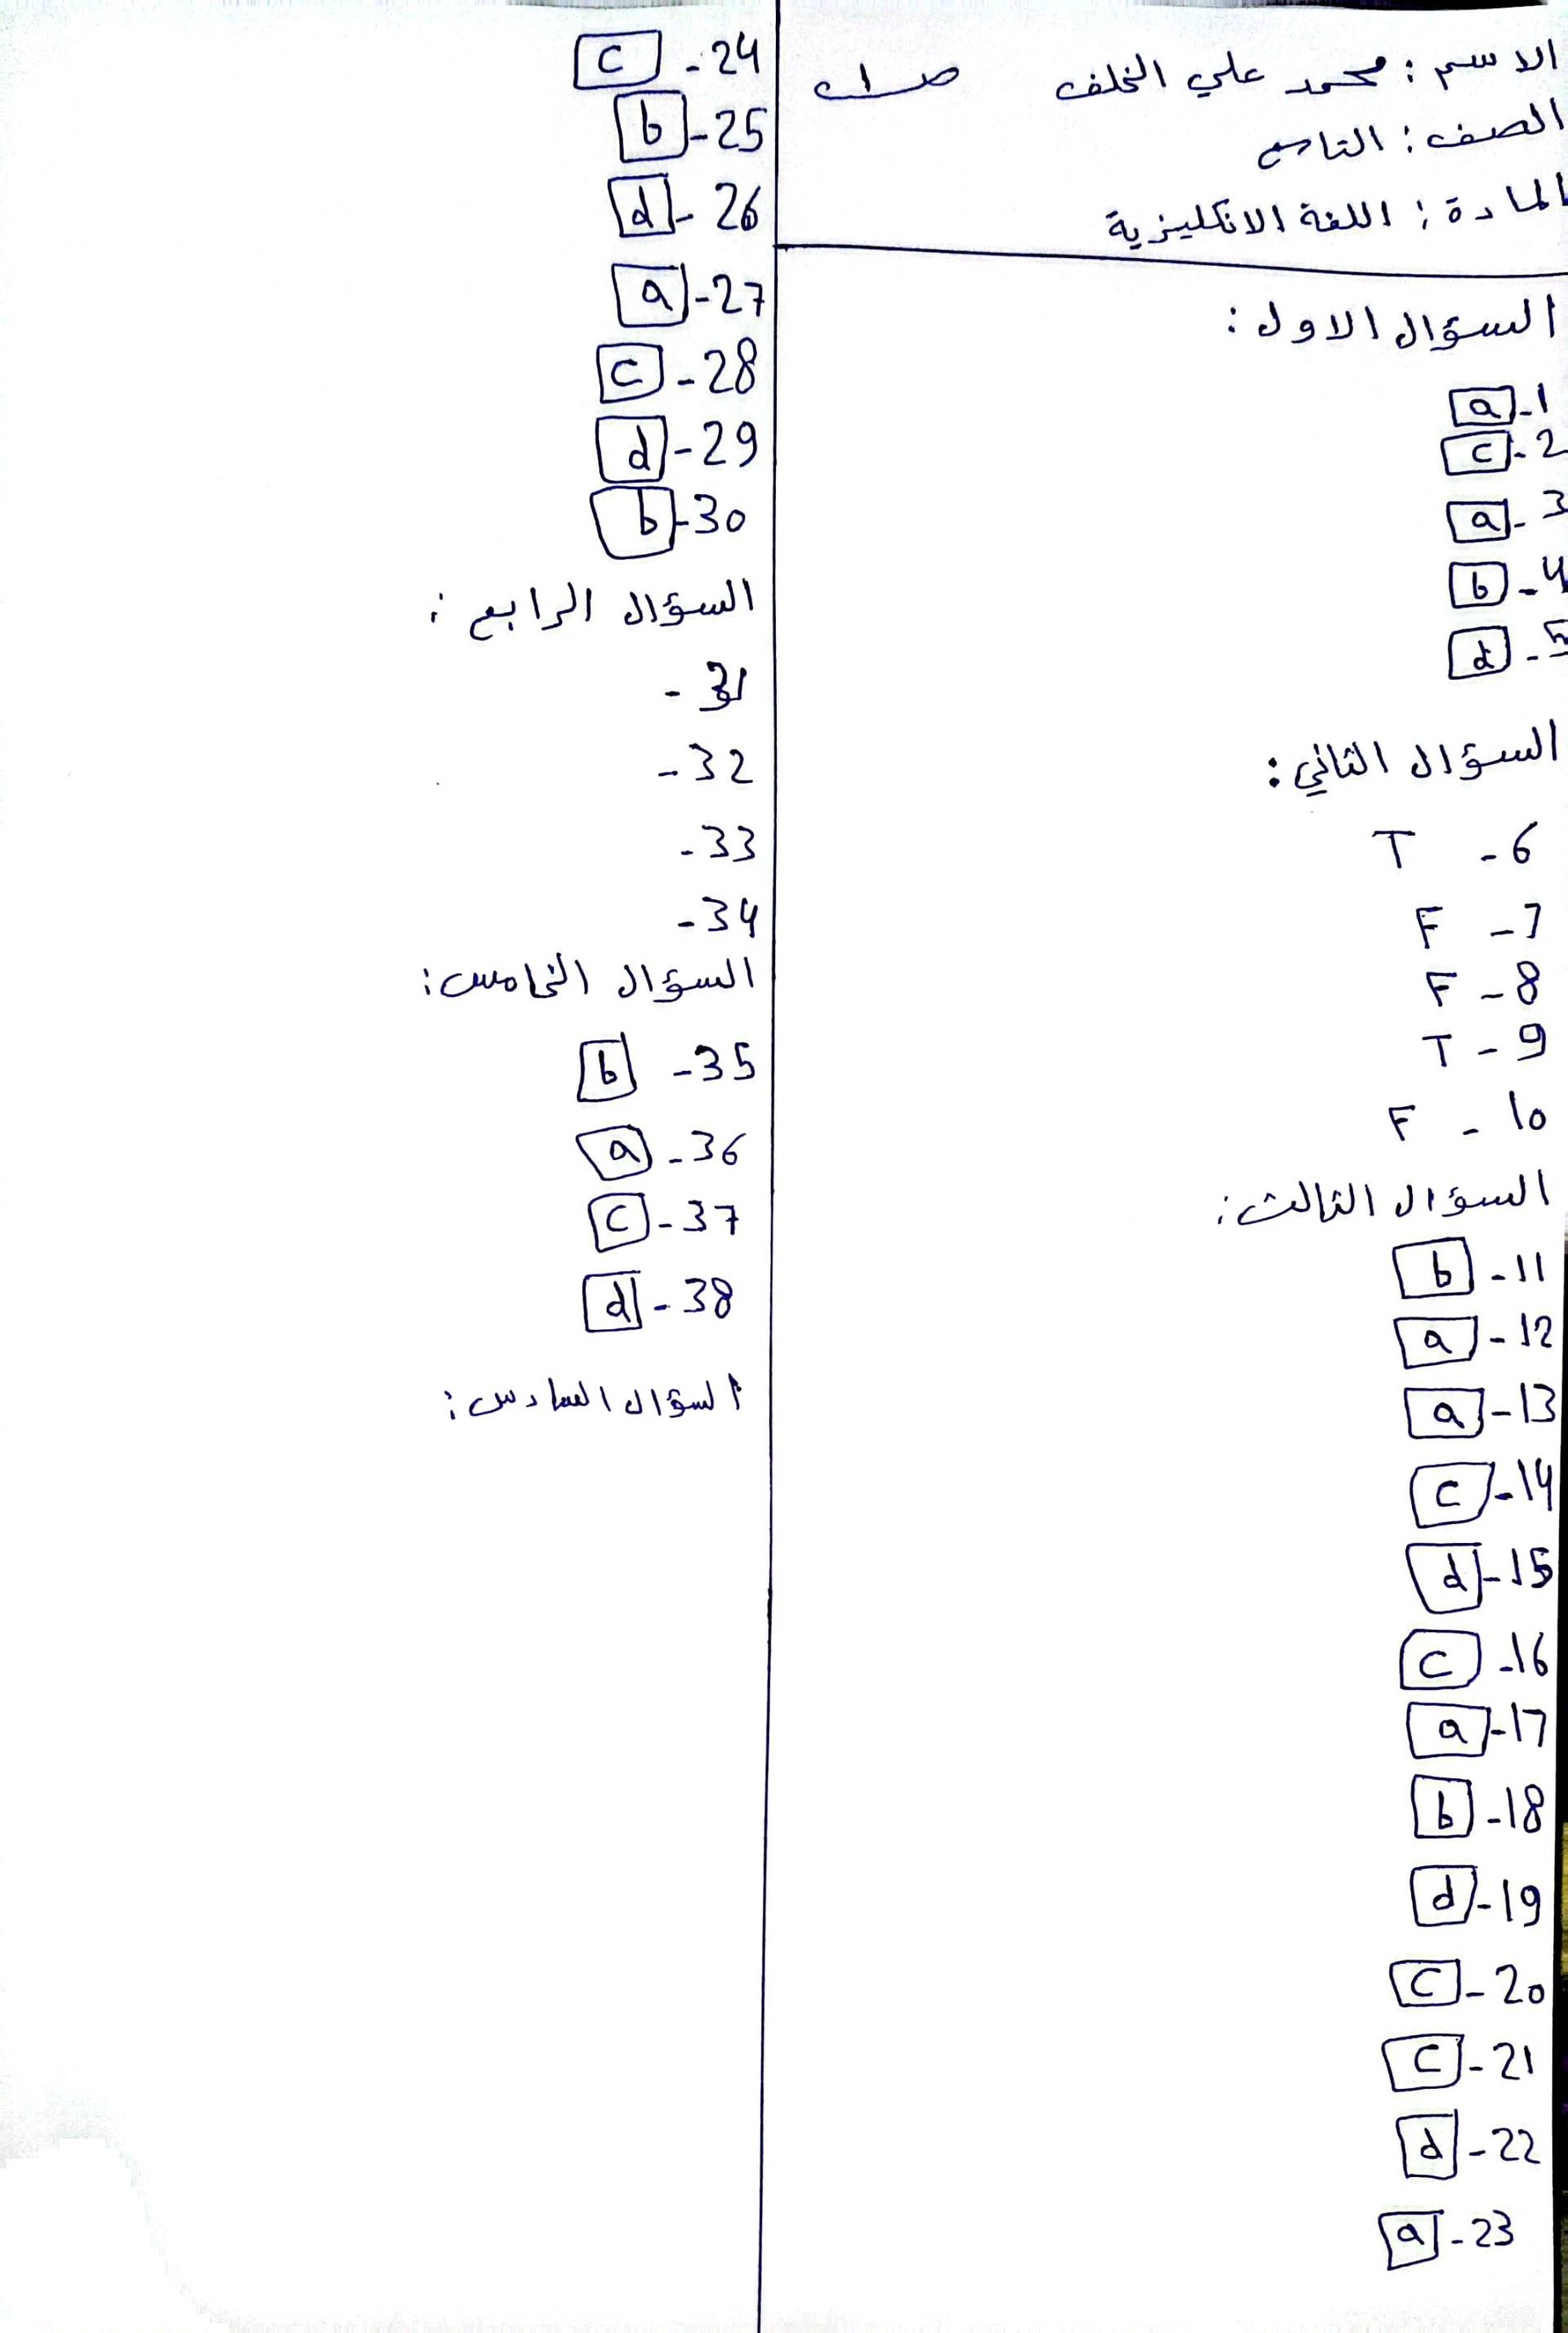 الاسم : محمد علي الخلف ص1
الصف : التاسع
المادة : اللغة الانكليزية
السؤال الاول :
1- a
2- c
3- a
4- b
5- d
السؤال الثاني :
6- T
7- F
8- F
9- T
10- F
السؤال الثالث :
11- b
12- a
13- a
14- c
15- d
16- c
17- a
18- b
19- d
20- c
21- c
22- d
23- a
24- c
25- b
26- d
27- a
28- c
29- d
30- b
السؤال الرابع :
31-
32-
33-
34-
السؤال الخامس :
35- b
36- a
37- c
38- d
السؤال السادس :